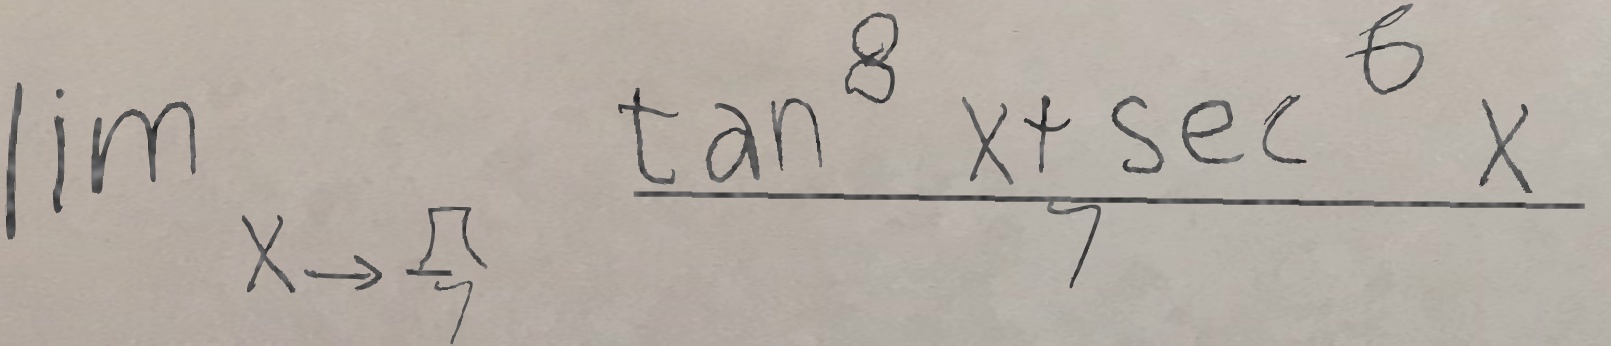 lim x→π/7 (tan^8 x + sec^6 x)/7